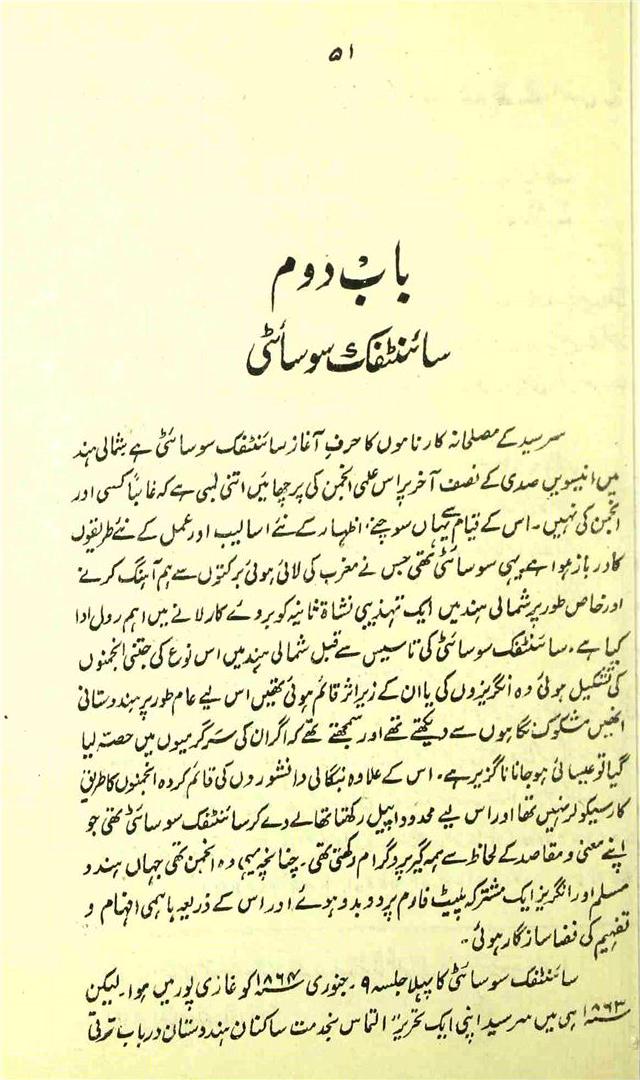 ۵۱
باب دوم
سائنٹفک سوسائٹی
سرسید کے مصلحانہ کارناموں کا حرفِ آغاز سائنٹفک سوسائٹی ہے شمالی ہند
میں انیسویں صدی کے نصف آخر پر اس علمی انجمن کی پرچھائیں اتنی لمبی ہے کہ غالباً کسی اور
انجمن کی نہیں۔ اس کے قیام سے یہاں سوچنے، اظہار کے نئے اسالیب اور عمل کے نئے طریقوں
کا در باز ہوا ہے یہی سوسائٹی تھی جس نے مغرب کی لائی ہوئی برکتوں سے ہم آہنگ کرنے
اور خاص طور پر شمالی ہند میں ایک تہذیبی نشاۃ ثانیہ کو بروئے کار لانے میں اہم رول ادا
کیا ہے۔ سائنٹفک سوسائٹی کی تاسیس سے قبل شمالی ہند میں اس نوع کی جتنی انجمنوں
کی تشکیل ہوئی وہ انگریزوں کی یا ان کے زیر اثر قائم ہوئی تھیں اس لیے عام طور پر ہندوستانی
انھیں مشکوک نگاہوں سے دیکھتے تھے اور سمجھتے تھے کہ اگر ان کی سرگرمیوں میں حصہ لیا
گیا تو عیسائی ہو جانا ناگزیر ہے۔ اس کے علاوہ بنگالی دانشوروں کی قائم کردہ انجمنوں کا طریق
کار سیکولر نہیں تھا اور اس لیے محدود اپیل رکھتا تھا لے دے کر سائنٹفک سوسائٹی تھی جو
اپنے معنی و مقاصد کے لحاظ سے ہمہ گیر پروگرام رکھتی تھی۔ چنانچہ یہی وہ انجمن تھی جہاں ہندو
مسلم اور انگریز ایک مشترکہ پلیٹ فارم پر دو بدو ہوئے اور اس کے ذریعہ باہمی افہام و
تفہیم کی فضا سازگار ہوئی۔
سائنٹفک سوسائٹی کا پہلا جلسہ ۹۔ جنوری ۱۸۶۴ء کو غازی پور میں ہوا۔ لیکن
۱۸۶۳ء ہی میں سرسید اپنی ایک تحریر "التماس بخدمت ساکنان ہندوستان درباب ترقی